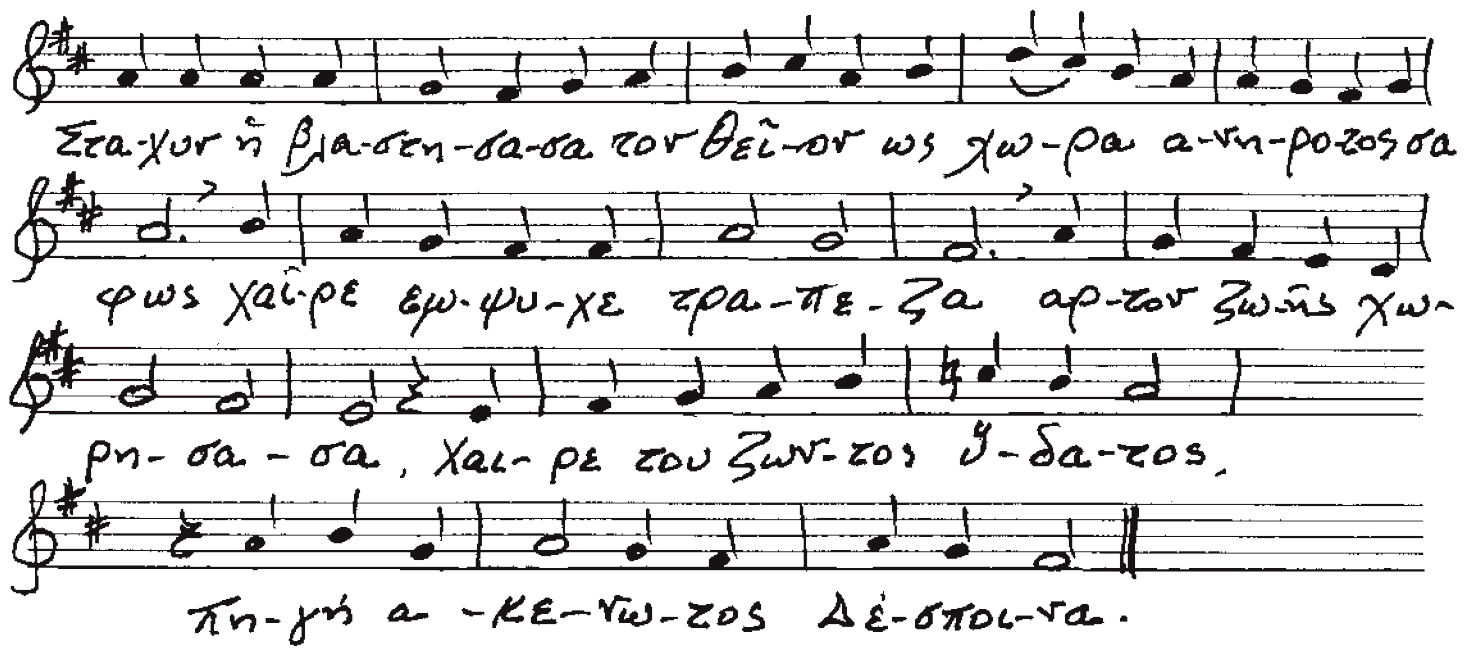 Στα-χυν ἡ βλα-στη-σα-σα τον θεῖ-ον ως χω-ρα α-νη-ρο-τος σα
φως χαῖ-ρε εμ-ψυ-χε τρα-πε-ζα αρ-τον ζω-ῆς χω-
ρη-σα-σα, χαι-ρε του ζων-τος ὕ-δα-τος,
πη-γή α-κε-νω-τος Δέ-σποι-να.